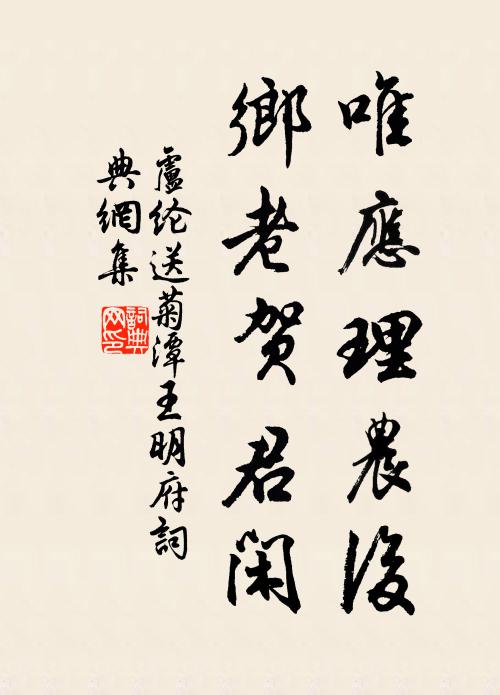 唯應理農後
鄉老贺君闲
盧纶送菊潭王明府詞
典網集
詞典
网印